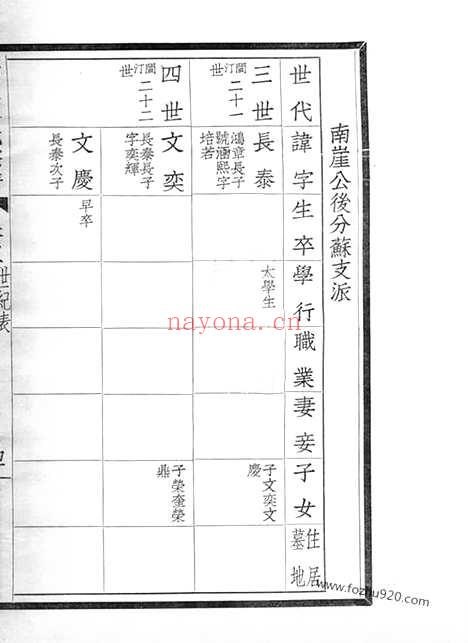 南崖公後分蘇支派
世代
諱字
生卒
學行
職業
妻妾
子女
住居
墓地
三世
閩汀二十一世
長泰
鴻章長子
號涵熙字
培若
太學生
子文奕文
慶
四世
閩汀二十二世
文奕
長泰長子
字奕輝
子榮奎榮
鼎
文慶
長泰次子
早卒
世紀表
nayona.cn
www.fozhu920.com